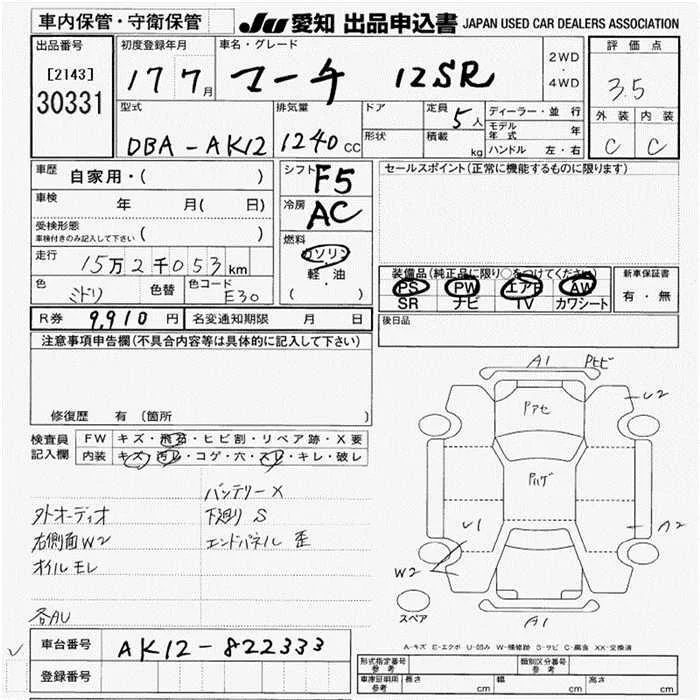 車内保管・守衛保管
JU 愛知 出品申込書 JAPAN USED CAR DEALERS ASSOCIATION
出品番号 初度登録年月 車名・グレード 2WD ・ 4WD 評価点
[2143] 30331 17 7月 マーチ 12SR 3.5
型式 排気量 ドア 定員 5人 ディーラー・並行 外装 内装
DBA-AK12 1240cc 形状 積載 kg モデル年式 年 C C
ハンドル 左・右
車歴 自家用・( ) シフト F5 セールスポイント(正常に機能するものに限ります)
車検 年 月( 日) 冷房 AC
受検形態 車検付きのみ記入して下さい ( )
燃料 ガソリン 軽・油 ( )
走行 15万2千053km
装備品(純正品に限り○をつけてください) 新車保証書
PS PW エアB AW 有・無
SR ナビ TV カワシート
色 ミドリ 色替 色コード E30
R券 9,910円 名変通知期限 月 日 後日品
注意事項申告欄(不具合内容等は具体的に記入して下さい)
修復歴 有 (箇所 )
検査員記入欄 FW キズ・飛石・ヒビ割・リペア跡・X要
内装 キズ・汚レ・コゲ・穴・スレ・キレ・破レ
バッテリーX
外オーディオ 下廻り S
右側面W2 エンドパネル 歪
オイルモレ
各AU
A1 Pヒビ
U2
Pアセ
Pハゲ
U1 A2
W2
スペア A1
A-キズ E-エクボ U-凹み W-補修跡 S-サビ C-腐食 XX-交換済
車台番号 AK12-822333
登録番号
形式指定番号 参考 類別区分番号 参考
車庫証明用 参考 長さ cm 幅 cm 高さ cm